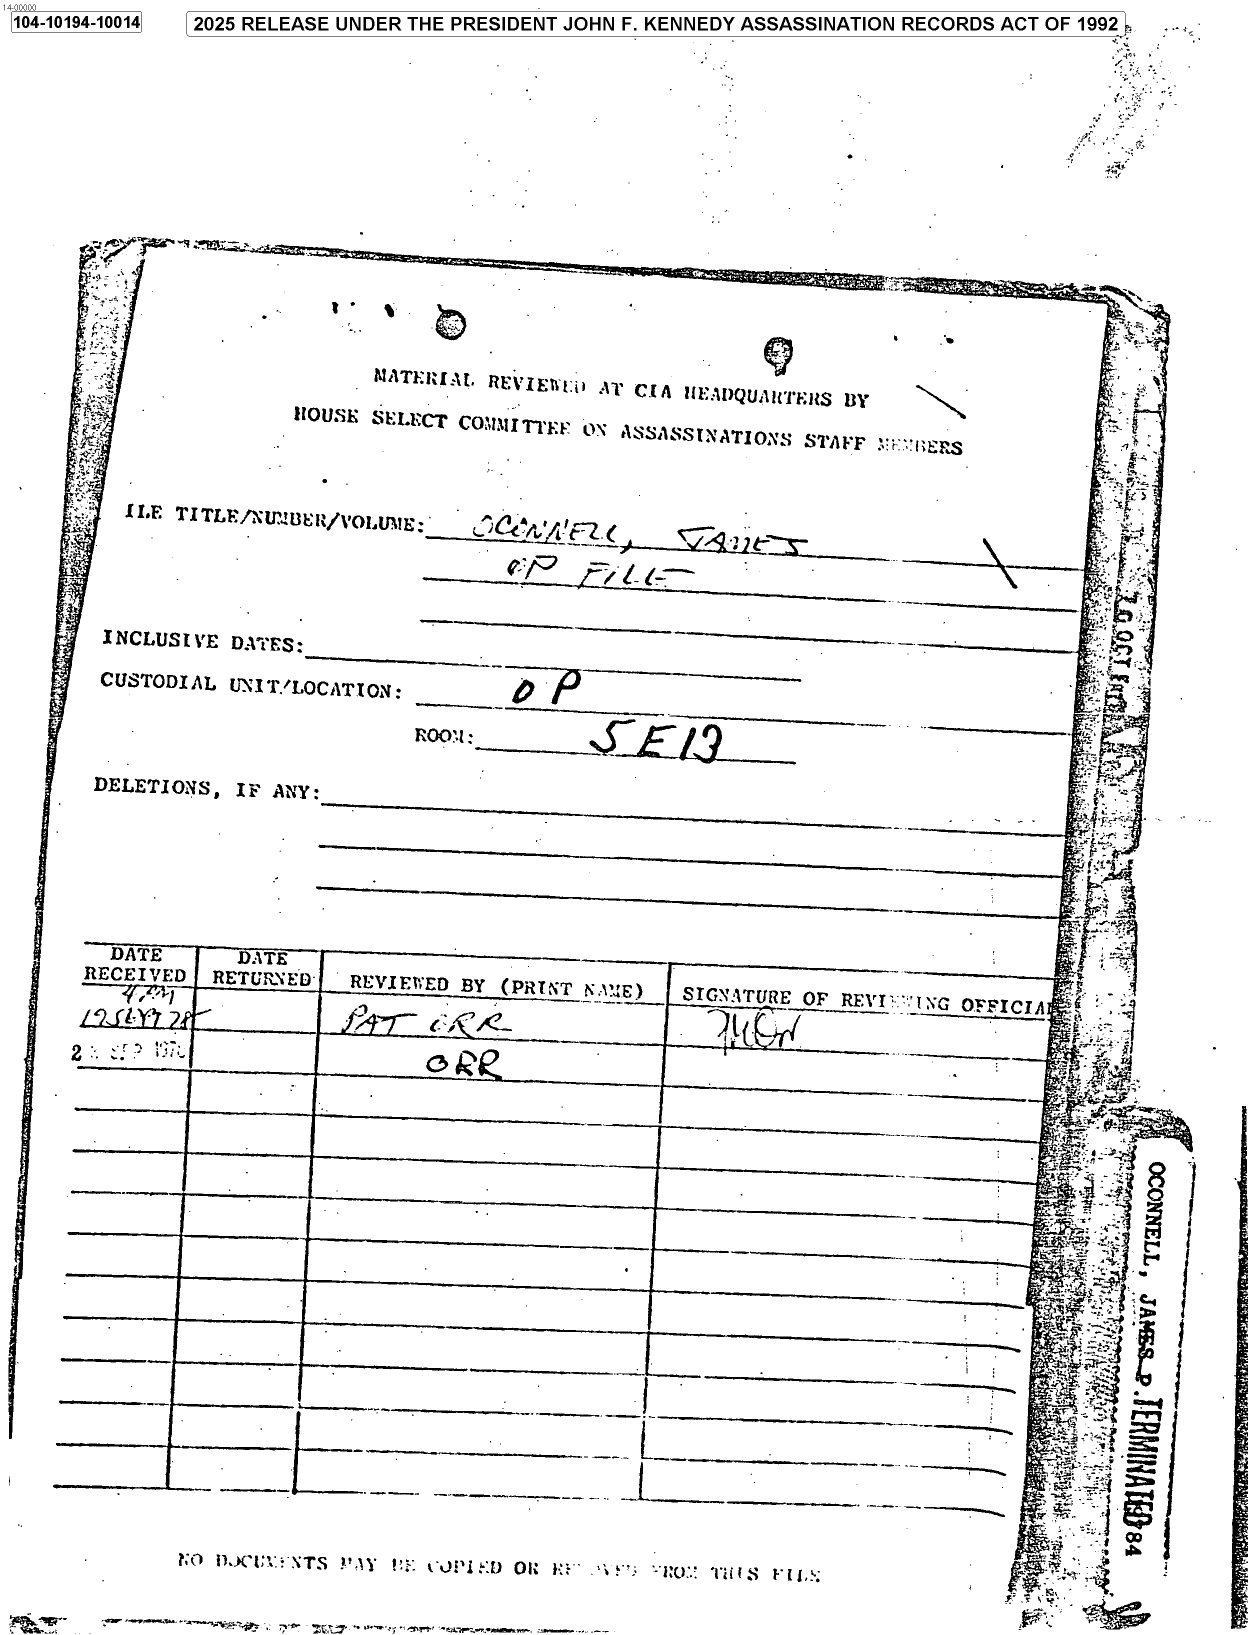 14-00000
104-10194-10014
2025 RELEASE UNDER THE PRESIDENT JOHN F. KENNEDY ASSASSINATION RECORDS ACT OF 1992
MATERIAL REVIEWED AT CIA HEADQUARTERS BY
HOUSE SELECT COMMITTEE ON ASSASSINATIONS STAFF MEMBERS
ILE TITLE/NUMBER/VOLUME: OCONNELL, JAMES
OP FILE
INCLUSIVE DATES:
CUSTODIAL UNIT/LOCATION: OP
ROOM: 5E13
DELETIONS, IF ANY:
DATE RECEIVED DATE RETURNED REVIEWED BY (PRINT NAME) SIGNATURE OF REVIEWING OFFICIAL
4 PM
19 SEPT 78 PAT ORR
SEP 1978 ORR
NO DOCUMENTS MAY BE COPIED OR REMOVED FROM THIS FILE
OCONNELL, JAMES P. TERMINATED